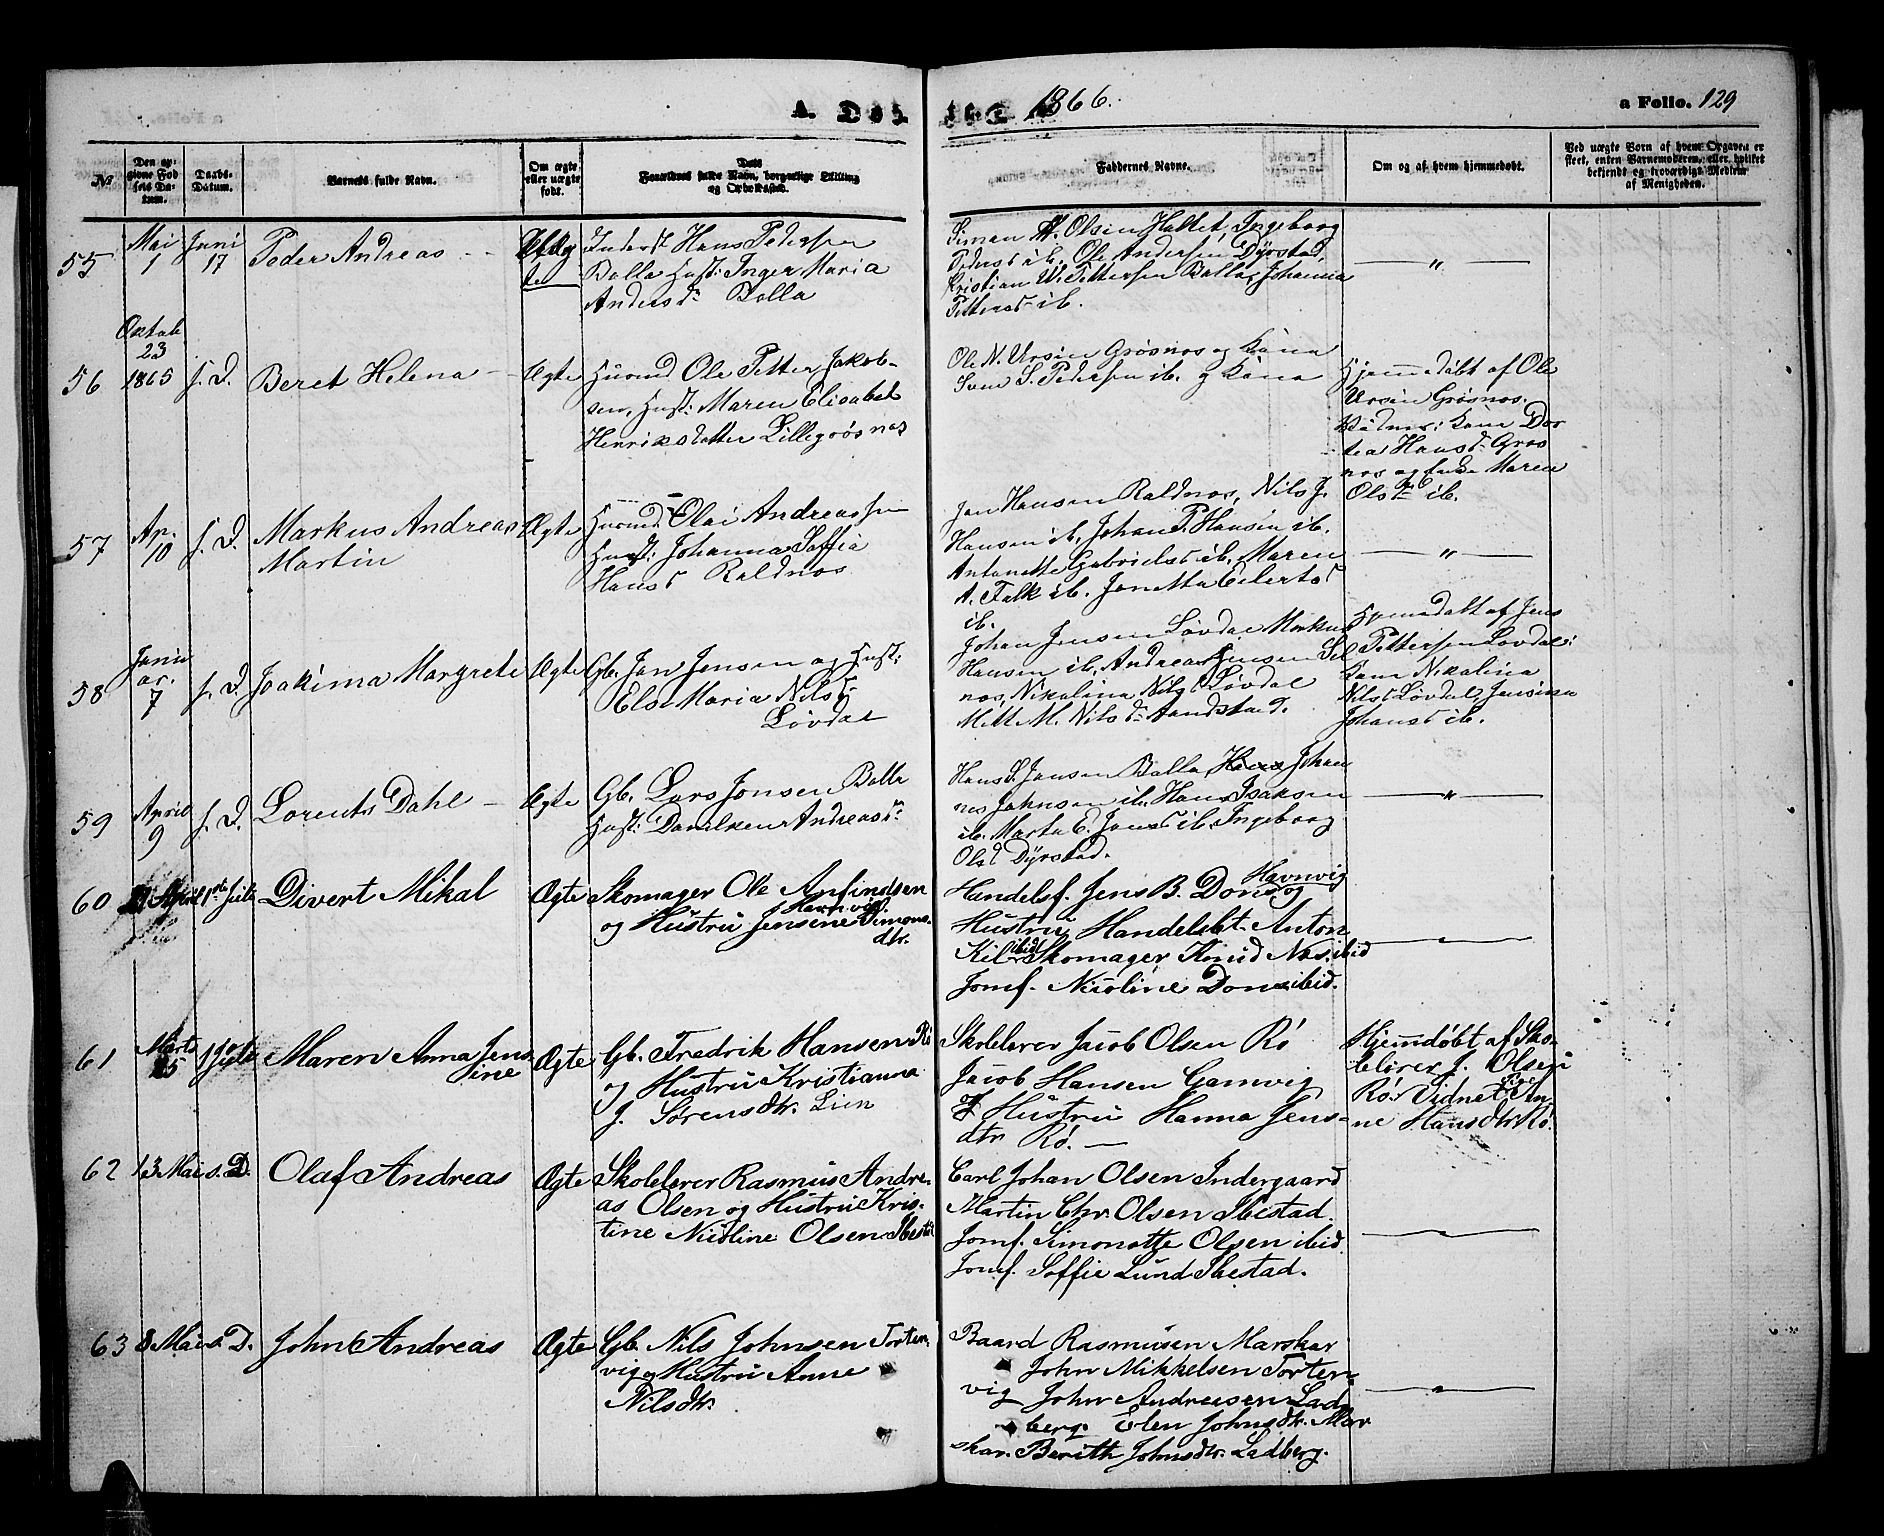 A. Døbte. 1866.
a Folio. 129
No
Den opgivne Fødsels Datum.
Daabs-Datum.
Barnets fulde Navn.
Om ægte eller uægte født.
Forældres fulde Navn, borgerlige Stilling og Opholdssted.
Faddernes Navne.
Om og af hvem hjemmedøbt.
Ved uægte Børn af hvem Opgaven er skeet, enten Barnemoderen, eller hvilket bekjendt og troværdigt Medlem af Menigheden.
55
Mai 1
Juni 17
Peder Andreas
Hans Pedersen
Balla Hust: Inger Maria
Andersd: Bolla
Simon Olsen Hallet, Ingeborg
Pedersd ib. Ole Andersen Dyrstad,
Kristian W. Pettersen Balla, Johanna
Pettersd ib.
"
56
Oktob 23 1865
s. D.
Beret Helena
Ægte
Huusmd Ole Petter Jakob-
sen, Hust: Maren Elisabet
Henriksdatter Lillegrøsnos
Ole N. Ursin Grøsnos og Kona
Sven S. Pedersen ib. og Kona
Hjemmedøbt af Ole
Ursin Grøsnos.
Vidner: Kone Dor
tea Hansd: Gros
nos og Maren
Olsd ib.
57
Ap. 10
s. D.
Markus Andreas
Martin
Ægte
Huusmd Olai Andreassen
Hust: Johanna Soffia
Hansd Roldnos
Jan Hansen Roldnos, Nils J.
Hansen ib, Johan P. Hansen ib.
Antonette Gabrielsd ib, Maren
A. Falk ib. Jonetta Eilertsd
ib.
"
58
Janu
ar. 7
s. D.
Joakima Margrete
Ægte
Gb. Jan Jensen og Hust:
Else Maria Nilsd
Løvdal
Johan Jensen Løvdal Markus
Hansen ib, Andreas Jensen Sel
nos, Nikolina Nilsd Løvdal
Mett M. Nilsd: Sandstad.
Hjemedøbt af Jens
Pettersen Løvdal:
Kone Nikolina
Nilsd Løvdal, Jensina
Johansd ib.
59
April 9
s. D.
Lorents Dahl
Ægte
Gb. Lars Jonsen Bolla
Hust: Danilken Andreasd:
Hans S. Jansen Balla, Johan
nes Johnsen ib, Hans Isaksen
ib. Marta E. Jonsd ib. Ingeborg
Olsd Dyrstad.
"
60
April
1ste Juli
Divert Mikal
Ægte
Skomager Ole Anfindsen
Havnvig.
og Hustru Jensine Simons-
dtr.
Havnvig
Handelsf. Jens B. Dons og
Hustru Handelsbt. Anton
Kil ibid Skomager Knud Nos ibid
Jomf. Nicoline Dons ibid.
61
Marts 25
1 Juli
Maren Anna Jen
sine
Ægte
Gb. Fredrik Hansen Rö
og Hustru Kristianna
J. Sörensdtr. Lien
Skolelærer Jacob Olsen Rö
Jacob Hansen Gamvig
Hustru Hanna Jens-
dtr Rö.
Hjemdöbt af Sko-
lelærer J. Olsen
Rö. Vidnet An
ne Hansdtr Rö.
62
13 Mai
s. D.
Olaf Andreas
Ægte
Skolelærer Rasmus Andre-
as Olsen og Hustru Kris-
tine Nicoline Olsen Ibestd
Carl Johan Olsen Indergaard
Martin Chr. Olsen Ibestad.
Jomf. Simonotte Olsen ibid.
Jomf. Soffie Lund Ibestad.
63
8 Mai
s. D.
John Andreas
Ægte
Gb. Nils Johnsen Torten
vig og Hustru Anne
Nilsdtr.
Baard Rasmusen Marskar
John Mikkelsen Torten-
vig John Andreasen Lad
berg. Elen Johnsdtr. Mar
skar. Berith Johnsdtr. Ladberg.